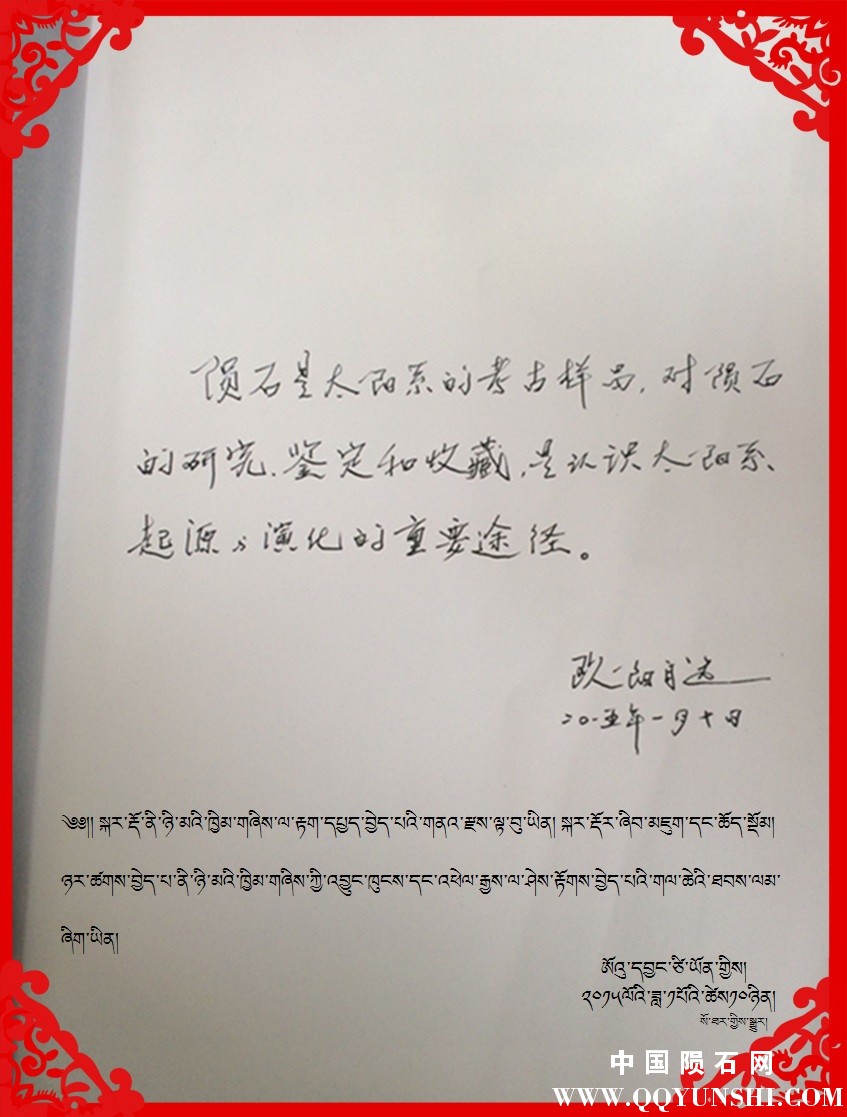 陨石是太阳系的考古样品，对陨石
的研究、鉴定和收藏，是认识太阳系、
起源与演化的重要途径。
欧阳自远
二〇一五年一月十日
༄༅།། སྐར་རྡོ་ནི་ཉི་མའི་ཁྱིམ་གཞིས་ལ་རྟག་དཔྱད་བྱེད་པའི་གནའ་རྫས་ལྟ་བུ་ཡིན། སྐར་རྡོར་ཞིབ་མཇུག་དང་ཚོད་སྡོམ།
ཉར་ཚགས་བྱེད་པ་ནི་ཉི་མའི་ཁྱིམ་གཞིས་ཀྱི་འབྱུང་ཁུངས་དང་འཕེལ་རྒྱས་ལ་ཤེས་རྟོགས་བྱེད་པའི་གལ་ཆེའི་ཐབས་ལམ་
ཞིག་ཡིན།
ཨོའུ་དབྱང་ཙི་ཡོན་གྱིས།
༢༠༡༥ལོའི་ཟླ་༡པོའི་ཚེས༡༠ཉིན།
སོ་ཐར་གྱིས་སྒྱུར།
中国陨石网
WWW.QQYUNSHI.COM